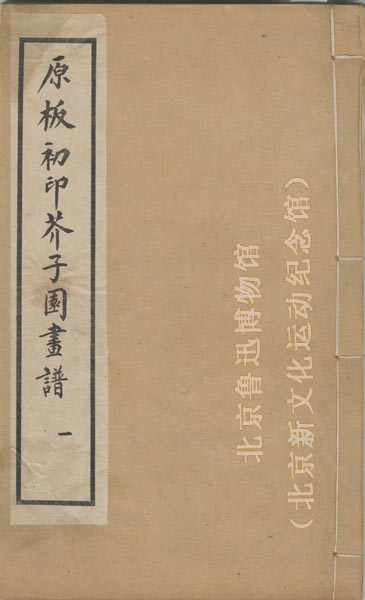 原板初印芥子園畫譜 一
北京鲁迅博物馆
(北京新文化运动纪念馆)